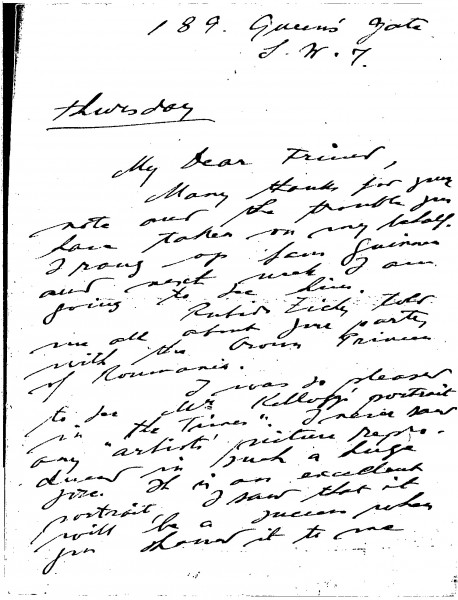 189. Queen's Gate
S. W. 7.
Thursday
My Dear Friend,
Many thanks for your
note and the trouble you
have taken on my behalf.
I rang up Guinness
and next week I am
going to see him.
told
me all about your party
with the Crown Prince
of Roumania.
I was so pleased
to see Mr Kellogg's portrait
in "The Times". I never saw
any artists' picture repro-
duced in such a huge
size. It is an excellent
portrait, I saw that it
will be a success when
you showed it to me